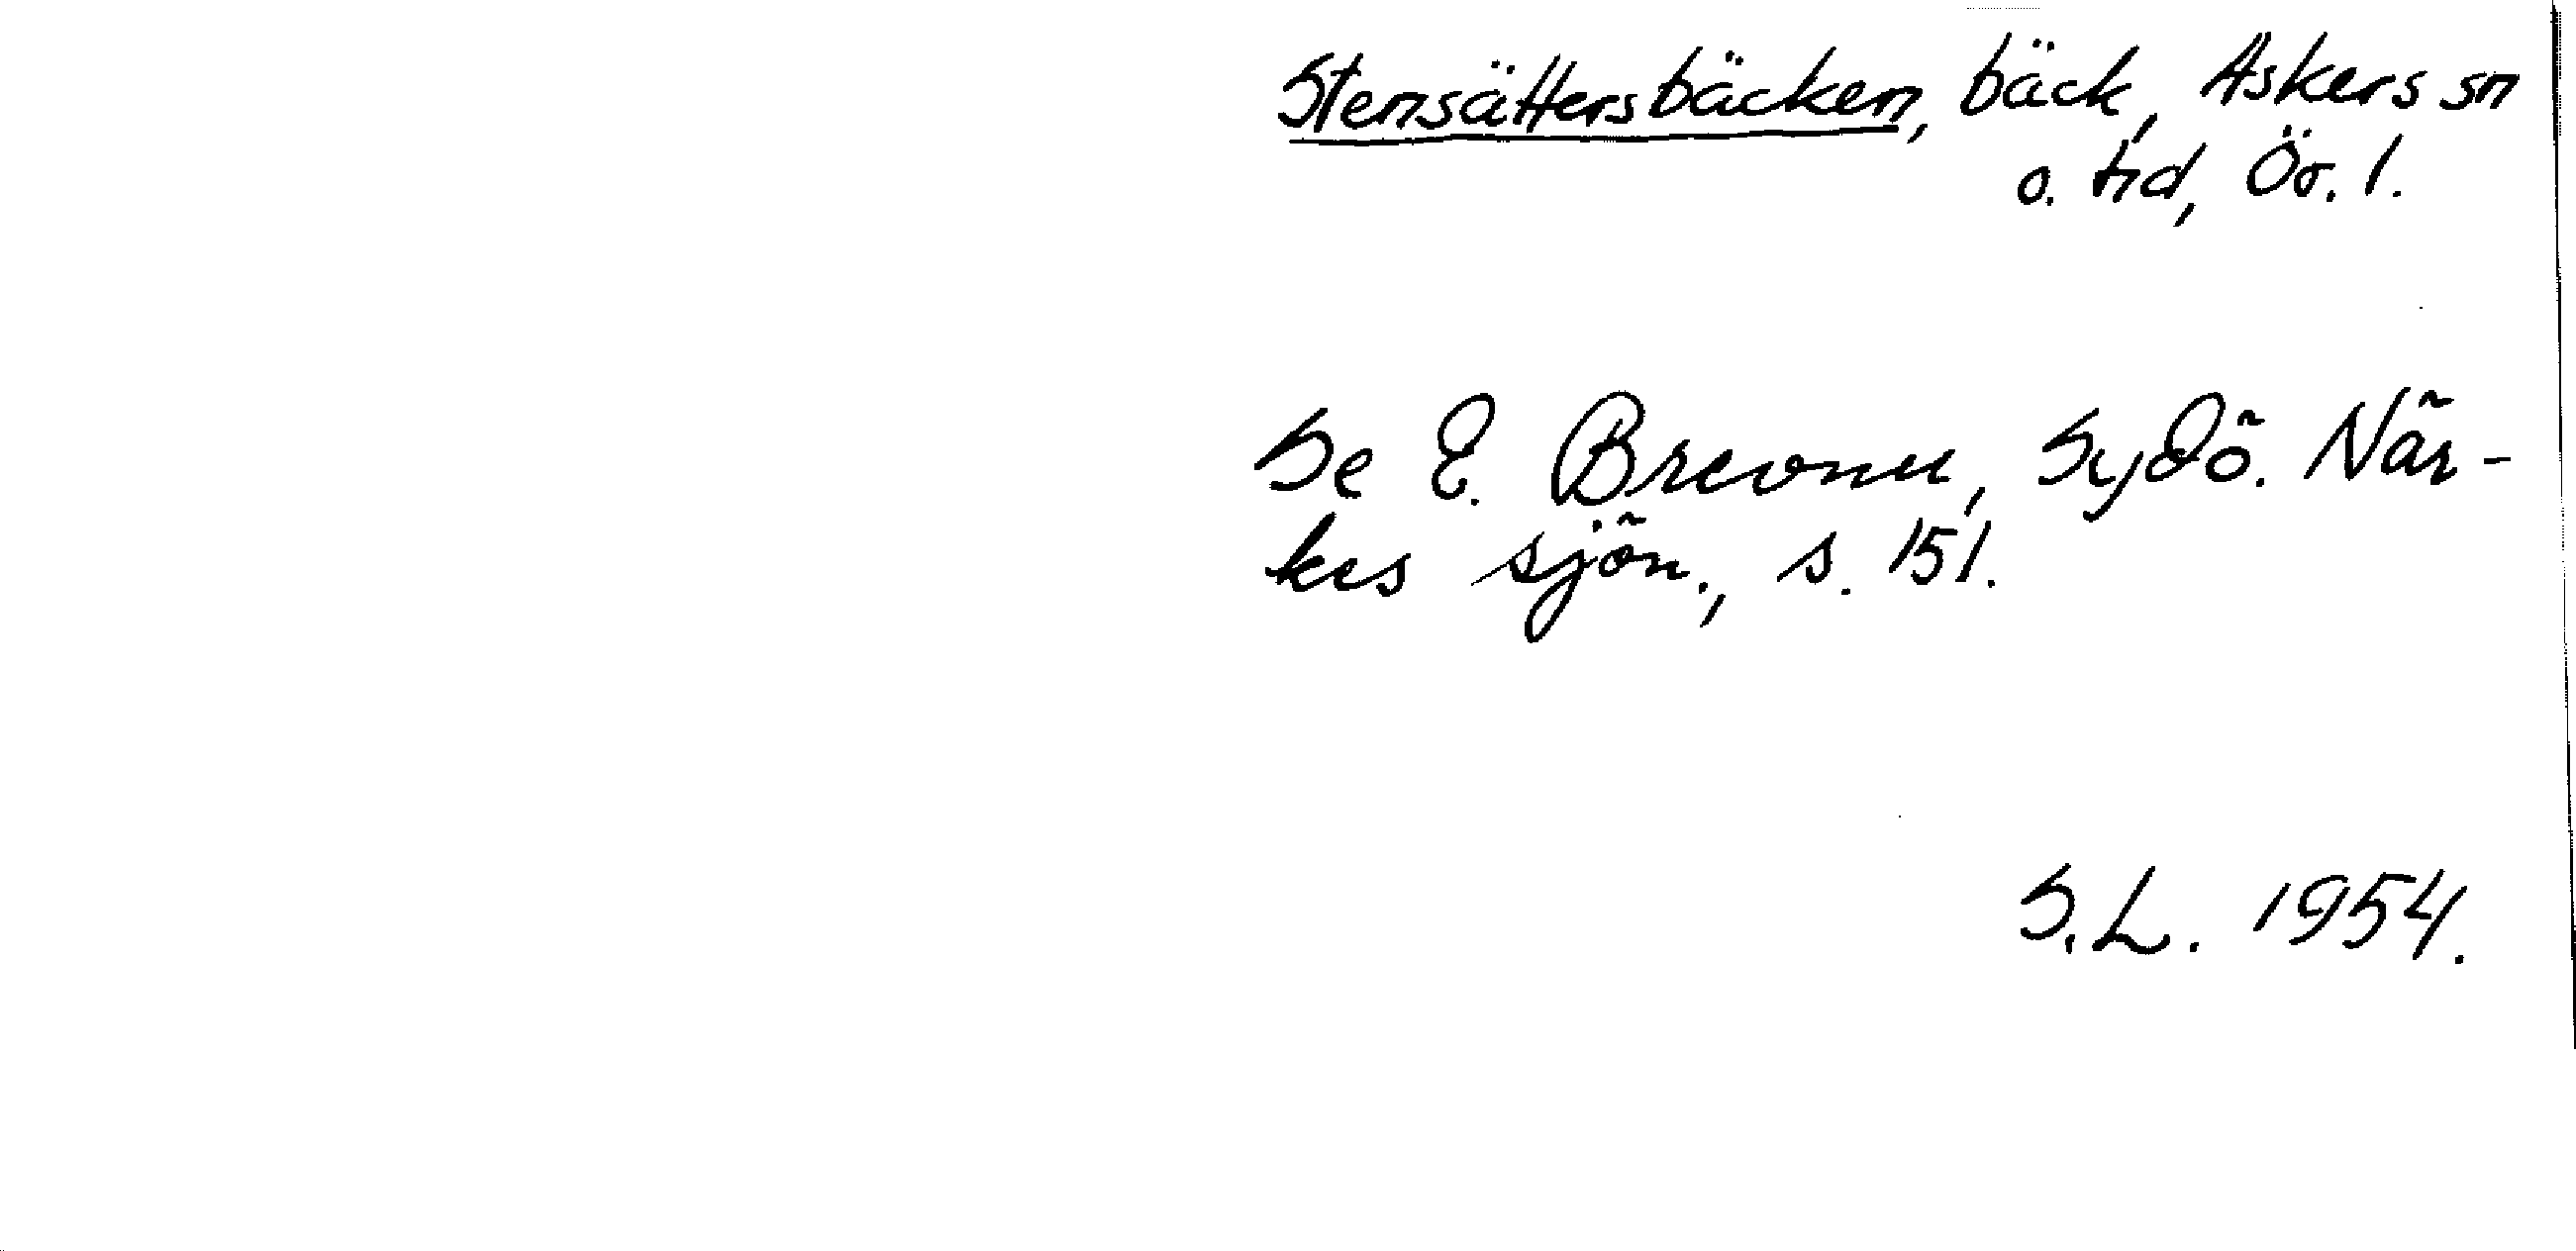 Stensättersbäcken, bäck, Askers sn
o. hd, Ör. l.
Se E. Brevner, Sydö. När-
kes sjön., s. 151.
S.L. 1954.